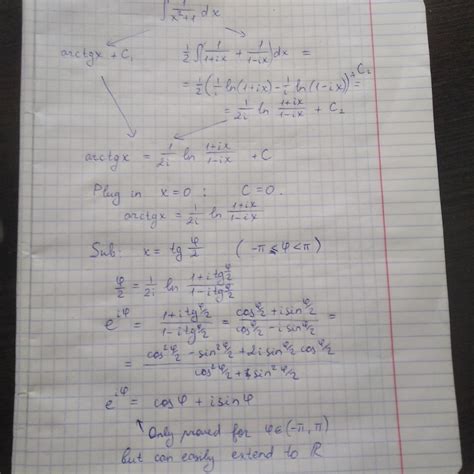 ∫ 1/(x²+1) dx
arctgx + C₁     1/2 ∫(1/(1+ix) + 1/(1-ix))dx =
= 1/2(1/i ln(1+ix) - 1/i ln(1-ix)) + C₂ =
= 1/2i ln (1+ix)/(1-ix) + C₂
arctgx = 1/2i ln (1+ix)/(1-ix) + C
Plug in x=0 : C=0.
arctgx = 1/2i ln (1+ix)/(1-ix)
Sub: x = tg φ/2 (-π < φ < π)
φ/2 = 1/2i ln (1+i tg φ/2)/(1-i tg φ/2)
e^(iφ) = (1+i tg φ/2)/(1-i tg φ/2) = (cos φ/2 + i sin φ/2)/(cos φ/2 - i sin φ/2) =
= (cos² φ/2 - sin² φ/2 + 2i sin φ/2 cos φ/2)/(cos² φ/2 + sin² φ/2)
e^(iφ) = cosφ + i sinφ
Only proved for φ∈(-π, π)
but can easily extend to ℝ